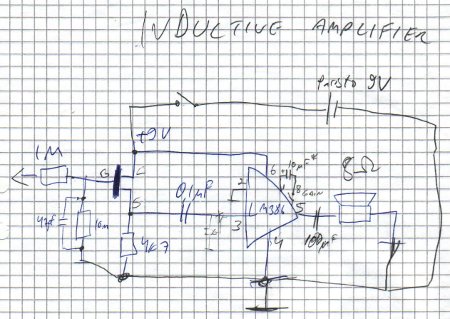 INDUCTIVE AMPLIFIER
9V
+9V
1M
G
S
0,1µF
2
3
6
10µF
8
GAIN
LM386
5
4
8Ω
100µF
10M
4K7